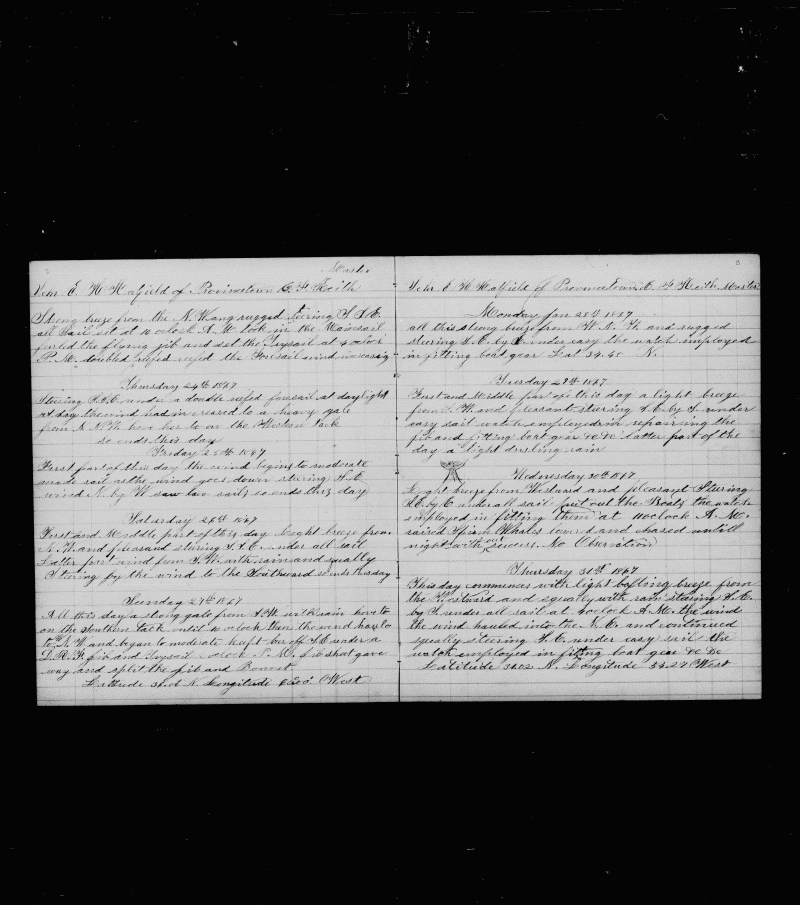 Master
Schr. E. H. Hatfield of Provincetown Keith
Strong breeze from the N. W. and rugged steering S S E.
all sail set at 10 oclock A. M. took in the Mainsail
furled the flying jib and set the trysail at 4 oclock
P. M. doubled reefed the Foresail wind increasing
Thursday 24th 1867
Steering S.S.E. under a double reefed foresail at daylight
at day the wind had increased to a heavy gale
from N. N. W. hove her to on the tack
so ends this day
Friday 25th 1867
First part of this day the wind begins to moderate
made sail as the wind goes down steering S. E.
wind N. by W. saw two sails so ends this day
Saturday 26th 1867
First and Middle part of this day light breeze from
N. W. and pleasand staring S. E. under all sail
Latter part wind from S. W. with rain and squally
Staring by the wind to the Southward so ends this day
Sunday 27th 1867
All this day a strong gale from S. W. with rain hove to
on the Southern tack until 10 oclock then the wind hauls to
to N W and began to moderate kept her off S. E under a
D. R. F. jib and trysail oclock P. M. jib sheet gave
way and split the jib and Bonnet
Latitude N. Longitude West
Schr. E H Hatfield of Provincetown Keith Master
Monday Jan 28th 1867
all this strong breeze from W. N. W. and rugged
steering S. E. by E. under easy the watch employed
in fitting boat gear Lat 34.45 N.
Tuesday 29th 1867
First and Middle part of this day a light breeze
from S. W. and pleasant staring S. E. by S. under
easy sail watch employed in repairing the
jib and fitting boat gear &c &c Latter part of the
day a light drisling rain
Wednesday 30th 1867
Light breeze from Westward and pleasant Staring
S. E. by E. under all sail put out the Boats the watch
employed in fitting them at 11 oclock A. M.
raised Spirm Whales lowered and chased untill
night with out sucsess. No Obsevation
Thursday 31st 1867
This day commences with light bafling breeze from
the Westward and squally with rain staring S. E.
by S. under all sail at 4 oclock A. M. the wind
the wind hauled into the N. E. and continued
squally steering S. E. under easy sail the
watch employed in fitting boat gear &c &c
Latitude 34.02 N. Longitude 34.27 West